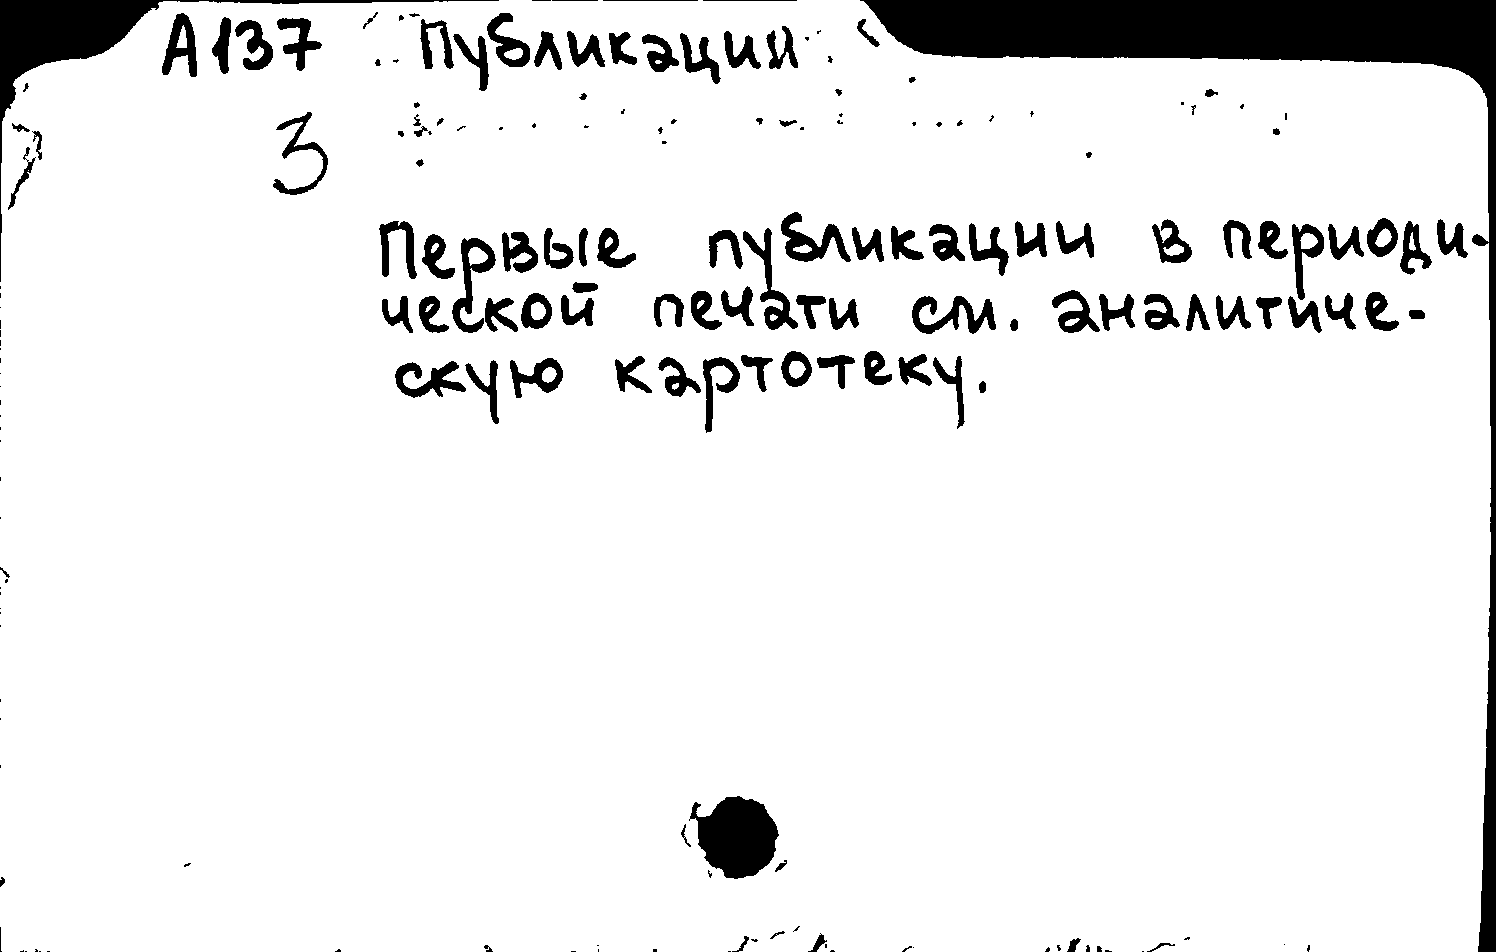 А137 Публикации
3
Первые публикации в периоди-
ческой печати см. аналитиче-
скую картотеку.